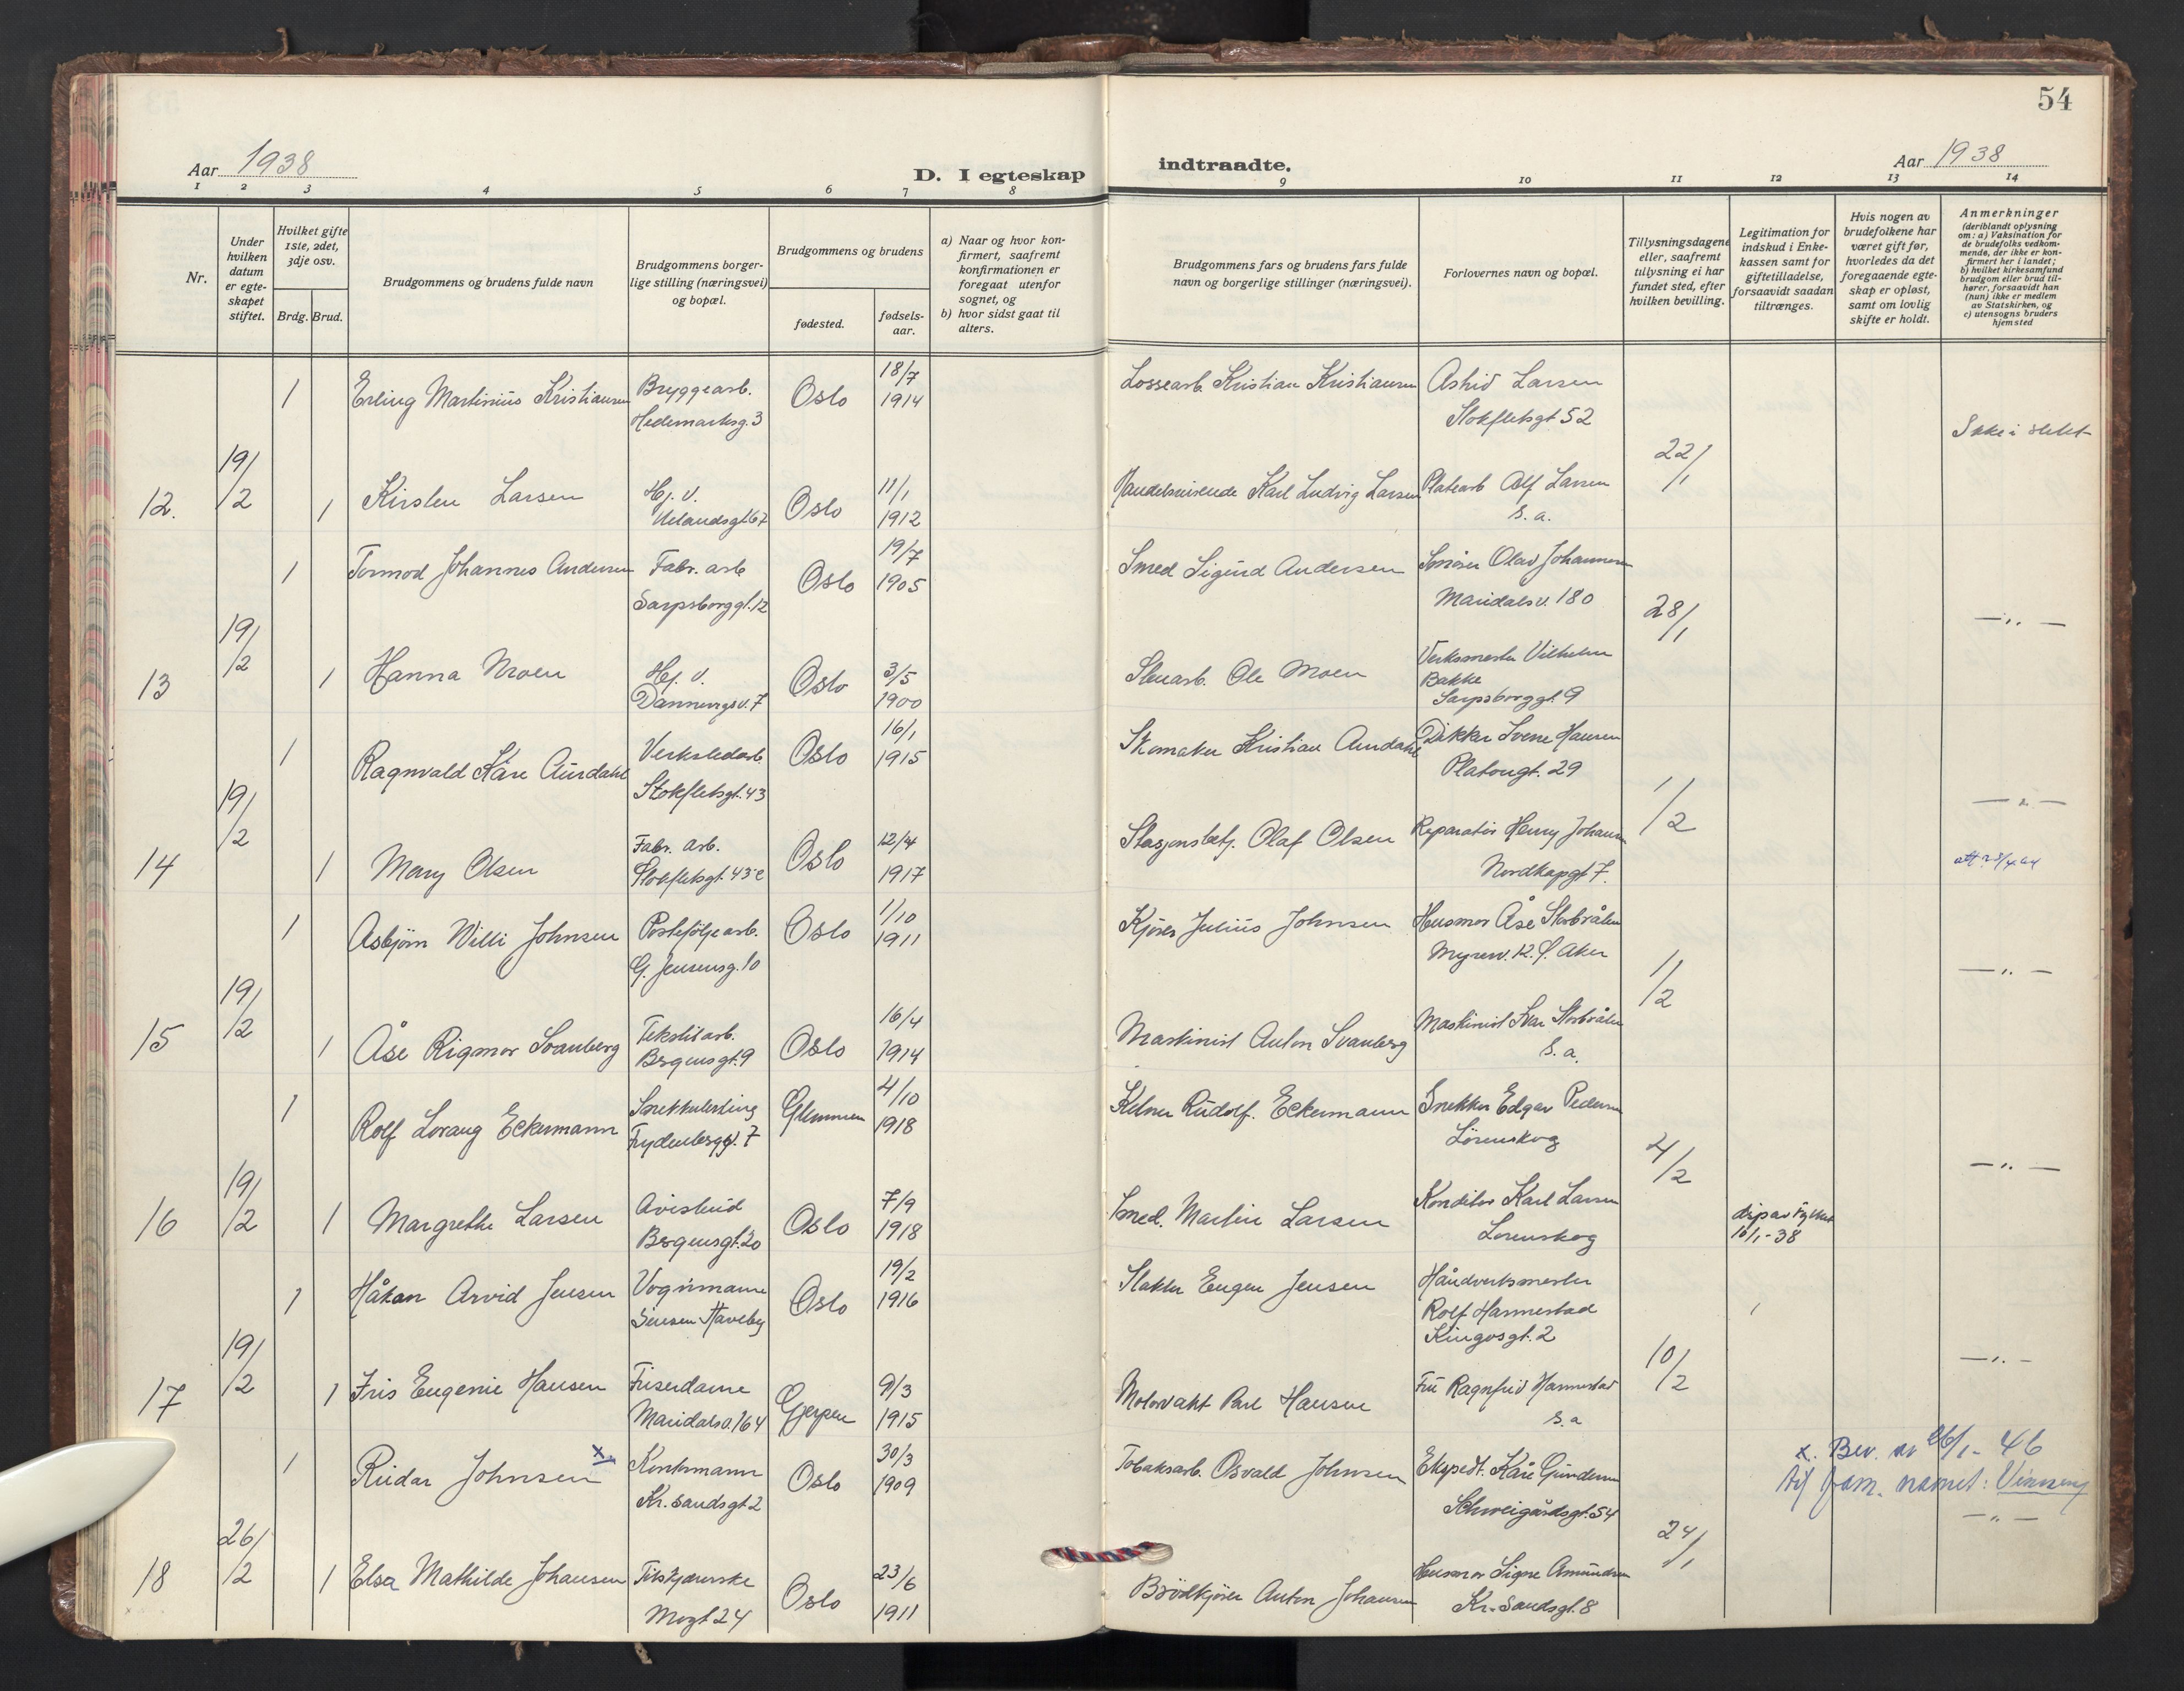 54
Aar 1938
D. I egteskap indtraadte.
Aar 1938
1 2 3 4 5 6 7 8 9 10 11 12 13 14
Nr.
Under hvilken datum er egteskapet stiftet.
Hvilket gifte 1ste, 2det, 3dje osv.
Brdg. Brud.
Brudgommens og brudens fulde navn
Brudgommens borgerlige stilling (næringsvei) og bopæl.
Brudgommens og brudens
fødested.
fødselsaar.
a) Naar og hvor konfirmert, saafremt konfirmationen er foregaat utenfor sognet, og
b) hvor sidst gaat til alters.
Brudgommens fars og brudens fars fulde navn og borgerlige stillinger (næringsvei).
Forlovernes navn og bopæl.
Tillysningsdagene eller, saafremt tillysning ei har fundet sted, efter hvilken bevilling.
Legitimation for indskud i Enkekassen samt for giftetilladelse, forsaavidt saadan tiltrænges.
Hvis nogen av brudefolkene har været gift før, hvorledes da det foregaaende egteskap er opløst, samt om lovlig skifte er holdt.
Anmerkninger (deriblandt oplysning om: a) Vaksination for de brudefolks vedkommende, der ikke er konfirmert her i landet; b) hvilket kirkesamfund brudgom eller brud tilhører, forsaavidt han (nun) ikke er medlem av Statskirken, og c) utensogns bruders hjemsted
1 Erling Martinius Kristiansen Bryggearb. Oslo 18/7 1914 Lossearb. Kristian Kristiansen Astrid Larsen
Hedemarksg. 3 Stokfletsgt 52
Ikke i slekt
12. 19/2 1 Kirsten Larsen Hj. v. Oslo 11/1 1912 Handelsreisende Karl Ludvig Larsen Platearb Alf Larsen 22/1
Uelandsgt. 67 s. a.
1 Tormod Johannes Andersen Fabr. arb Oslo 19/7 1905 Smed Sigurd Andersen Olav Johannesen
Sarpsborggt. 12 Maridalsv. 180
13 19/2 1 Hanna Moen Hj. v. Oslo 3/5 1900 Stenarb. Ole Moen Verksmester Vilhelm Bakke 28/1 —"—
Dannevigsv. 7 Sarpsborggt. 9
1 Ragnvald Kåre Aurdahl Verkstedarb. Oslo 16/1 1915 Skomaker Kristian Aurdahl Sverre Hansen
Stokfletsgt. 43 Platougt. 29
14 19/2 1 Mary Olsen Fabr. arb. Oslo 12/4 1917 Stasjonsbetj. Olaf Olsen Reparatør Henry Johansen 1/2 —"—
Stokfletsgt. 43 c Nordkapgt 7.
1 Asbjørn Willi Johnsen Portefølje arb. Oslo 1/10 1911 Kjører Julius Johnsen Husmor Åse Storbråten
G. Jensensg. 10 Myrerv. 12. Aker
15 19/2 1 Åse Rigmor Svanberg Tekstilarb. Oslo 16/4 1914 Maskinist Anton Svanberg Maskinist Ivar Storbråten 1/2 —"—
Bergensgt. 9 s. a.
1 Rolf Lorang Eckermann Snekkerlerling Glemmen 4/10 1918 Kelner Rudolf. Eckermann Snekker Edgar Pedersen
Frydenberggt. 7 Lørenskog
16 19/2 1 Margrethe Larsen Avisbud Oslo 7/9 1918 Smed. Martin Larsen Konditor Karl Larsen 4/2 —"—
Bergensgt. 20 Lørenskog
disp av fylket
16/1-38
1 Håkon Arvid Jensen Vognmann Oslo 19/2 1916 Slakter Eugen Jensen Håndverksmester
Sinsen Haveby Rolf Harmestad
Kingosgt. 2
17 19/2 1 Iris Eugenie Hansen Friserdame Gjerpen 9/3 1915 Motorvakt Paul Hansen Fru Ragnfrid Harmestad 10/2 —"—
Maridalsv. 164 s. a
1 Reidar Johnsen x Kontormann Oslo 30/3 1909 Tobaksarb. Osvald Johnsen Ekspedt. Kåre Gundersen
Kr. sandsgt 2 Schweigårdsgt. 54
x. Bev. av 26/1-46
fam. navnet:
18 26/2 1 Elsa Mathilde Johansen Oslo 23/6 1911 Brødkjører Anton Johansen Husmor Signe Amundsen 24/1 —"—
Mogt 24 Kr. sandsgt. 8